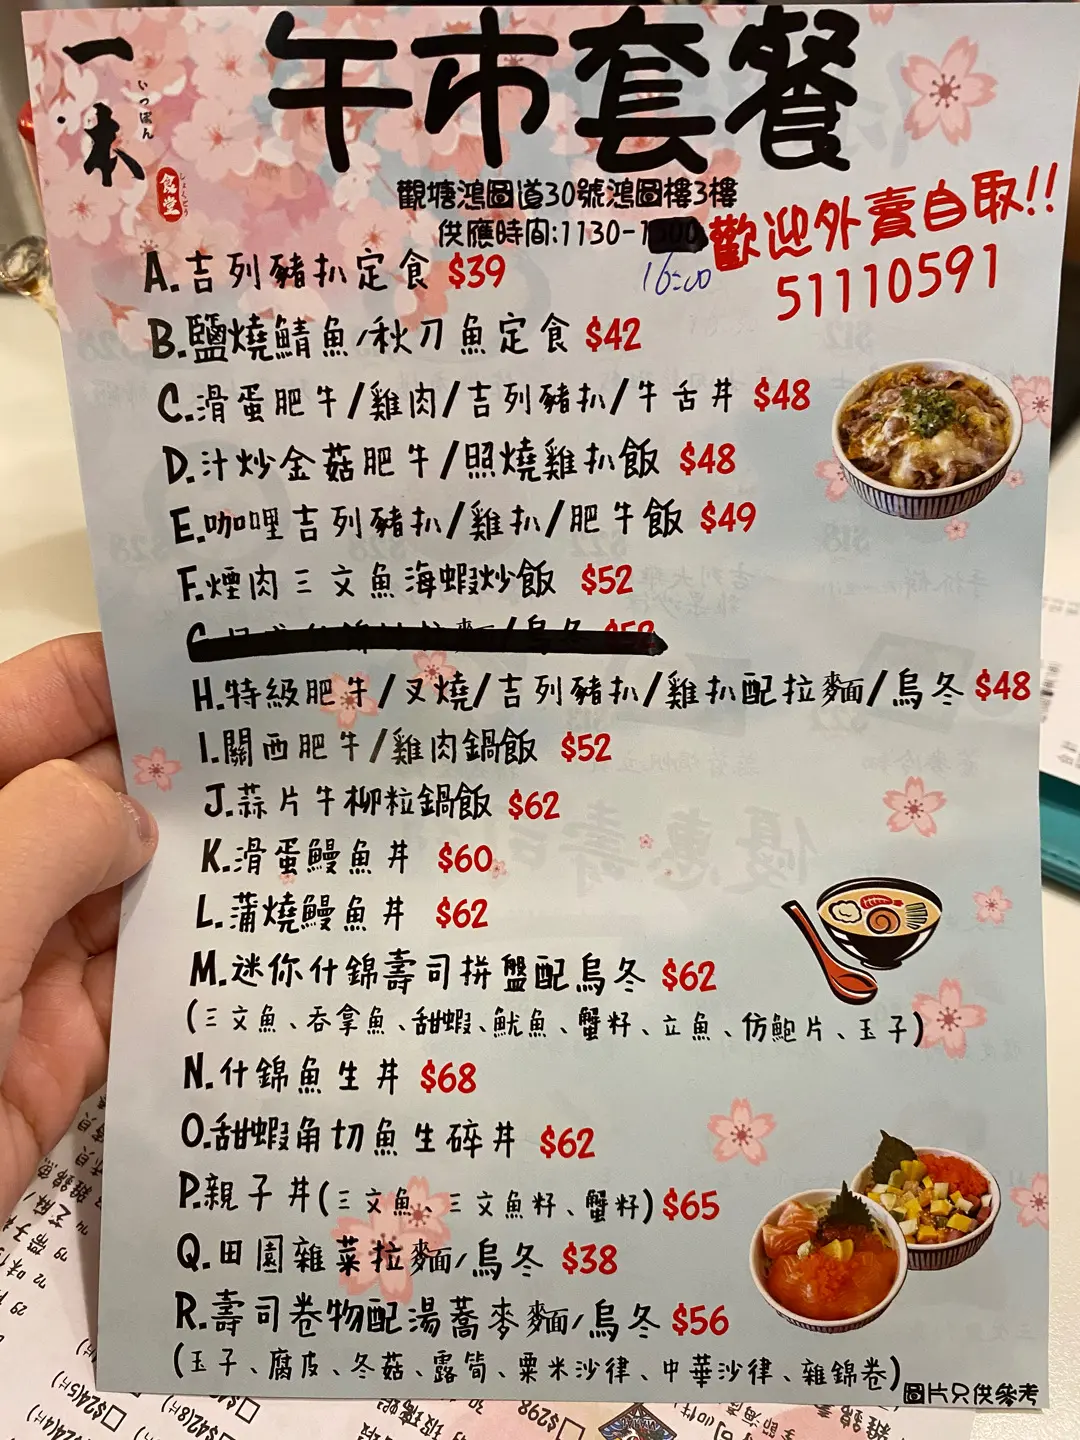 一本
いっぽん
食堂
しょくどう
午市套餐
觀塘鴻圖道30號鴻圖樓3樓
供應時間:1130-
16:00
歡迎外賣自取!!
51110591
A.吉列豬扒定食 $39
B.鹽燒鯖魚/秋刀魚定食 $42
C.滑蛋肥牛/雞肉/吉列豬扒/牛舌丼 $48
D.汁炒金菇肥牛/照燒雞扒飯 $48
E.咖哩吉列豬扒/雞扒/肥牛飯 $49
F.煙肉三文魚海蝦炒飯 $52
H.特級肥牛/叉燒/吉列豬扒/雞扒配拉麵/烏冬 $48
I.關西肥牛/雞肉鍋飯 $52
J.蒜片牛柳粒鍋飯 $62
K.滑蛋鰻魚丼 $60
L.蒲燒鰻魚丼 $62
M.迷你什錦壽司拼盤配烏冬 $62
(三文魚、吞拿魚、甜蝦、魷魚、蟹籽、立魚、仿鮑片、玉子)
N.什錦魚生丼 $68
O.甜蝦角切魚生碎丼 $62
P.親子丼(三文魚、三文魚籽、蟹籽) $65
Q.田園雜菜拉麵/烏冬 $38
R.壽司卷物配湯蕎麥麵/烏冬 $56
(玉子、腐皮、冬菇、露筍、粟米沙律、中華沙律、雜錦卷)
圖片只供參考